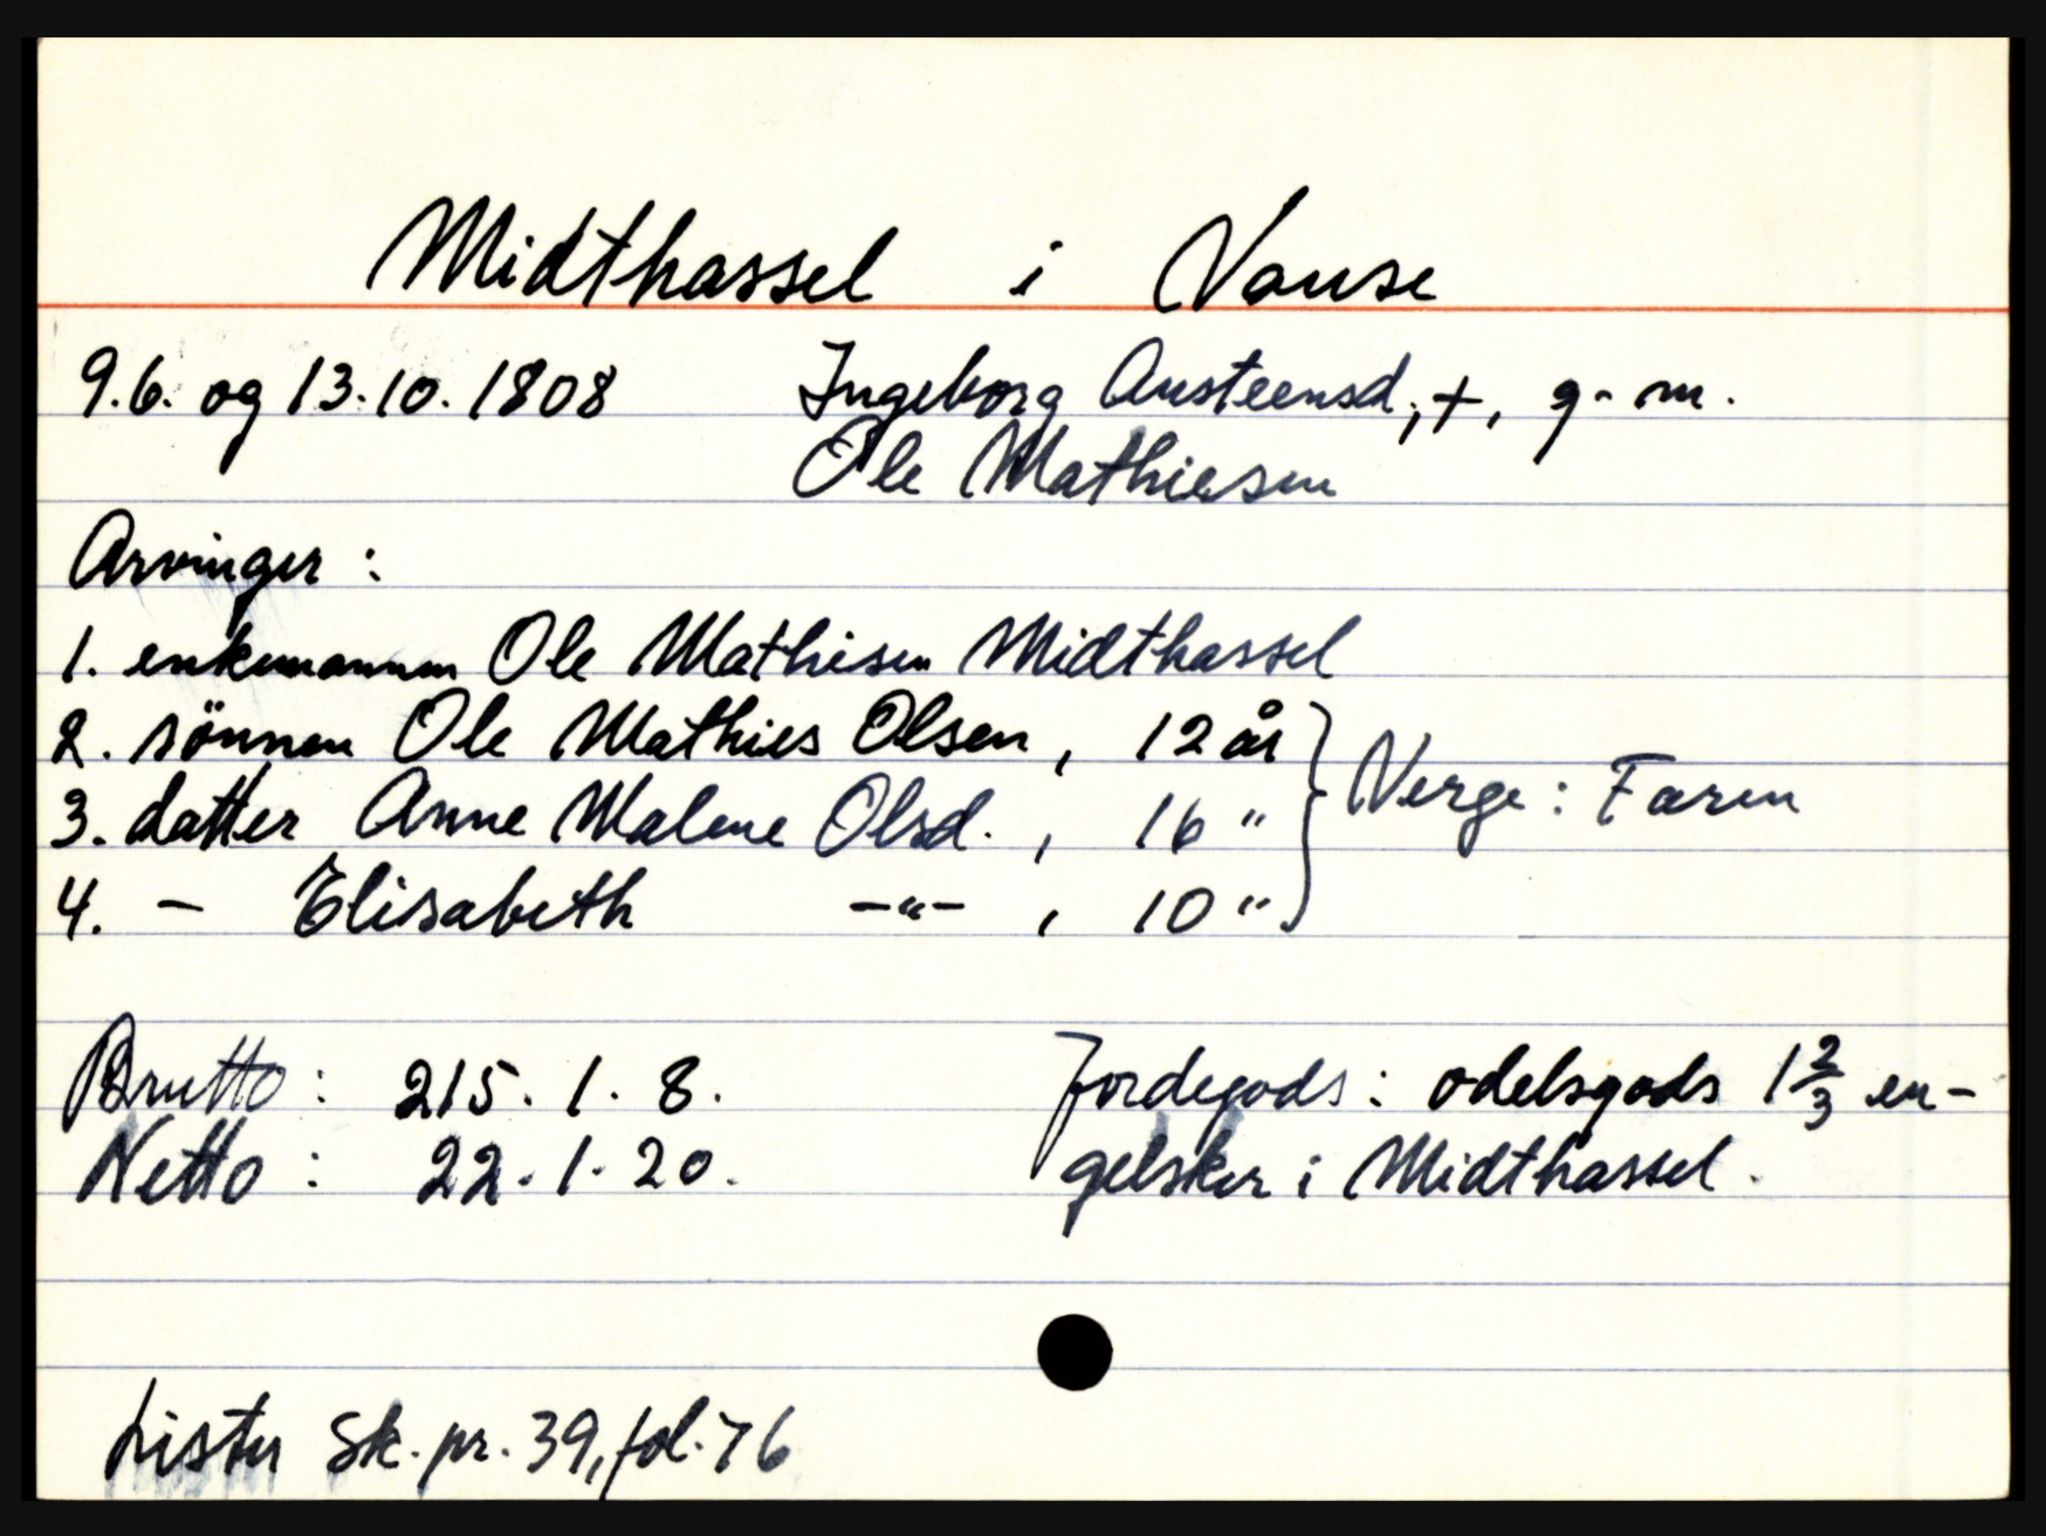 Midthassel i Vanse
9.6. og 13.10.1808 Ingeborg Austeensd., +, g. m.
Ole Mathiesen
Arvinger :
1. enkemannen Ole Mathisen Midthassel
2. sönnen Ole Mathies Olsen, 12 år
3. datter Anne Malene Olsd. , 16 " } Verge: Faren
4. – Elisabeth –"– , 10 "
Brutto : 215. 1. 8. Jordegods : odelsgods 1 2/3 en-
Netto : 22. 1. 20. gelsker i Midthassel.
Lister Sk. pr. 39, fol. 76